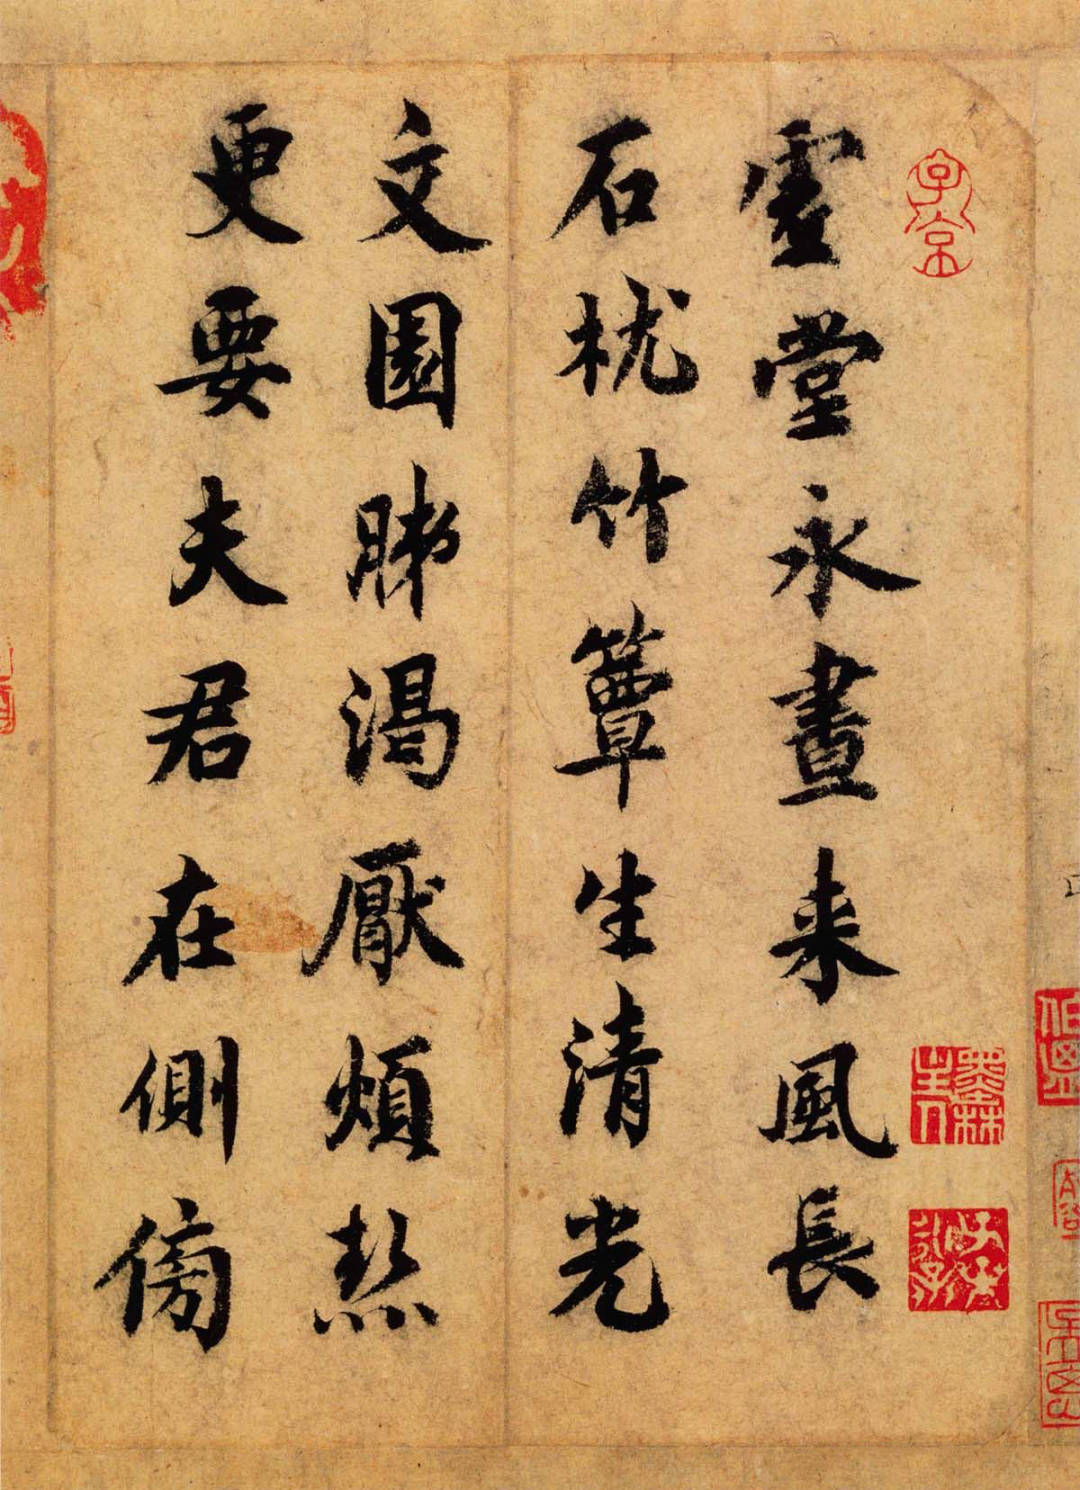 虚堂永晝来風長
石枕竹簟生清光
文園肺渴厭煩熱
更要夫君在側傍